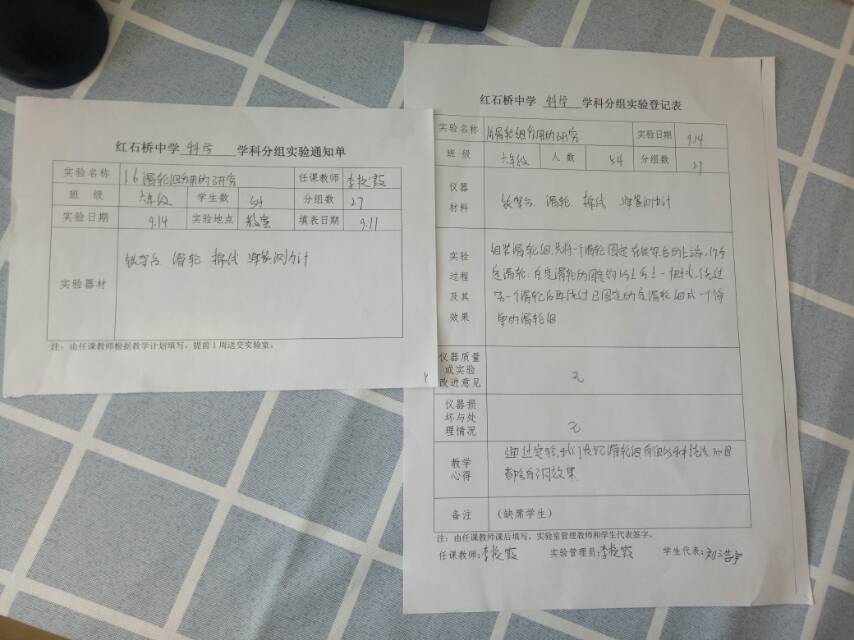 红石桥中学 科学 学科分组实验通知单
实验名称 16滑轮组作用的研究 任课教师 李校霞
班 级 六年级 学生数 54 分组数 27
实验日期 9.14 实验地点 教室 填表日期 9.11
实验器材 铁架台 滑轮 棉线 弹簧测力计
注：由任课教师根据教学计划填写，提前1周送交实验室。
4
红石桥中学 科学 学科分组实验登记表
实验名称 滑轮组作用的研究 实验日期 9.14
班 级 六年级 人 数 54 分组数 27
仪器
材料
铁架台 滑轮 棉线 弹簧测力计
实验
过程
及其
效果
组装滑轮组,先将一个滑轮固定在铁架台的上端,作为
定滑轮;在定滑轮的固定钩上系上一根线,绕过
另一个滑轮后再绕过已固定的定滑轮组成一个简
单的滑轮组
仪器质量
或实验
改进意见
无
仪器损
坏与处
理情况
无
教学
心得
通过实验,我们发现滑轮组有很多种绕法 而且
都有自己的效果
备注 （缺席学生）
注：由任课教师课后填写，实验室管理教师和学生代表签字。
任课教师:李校霞 实验管理员:李校霞 学生代表:刘浩宇